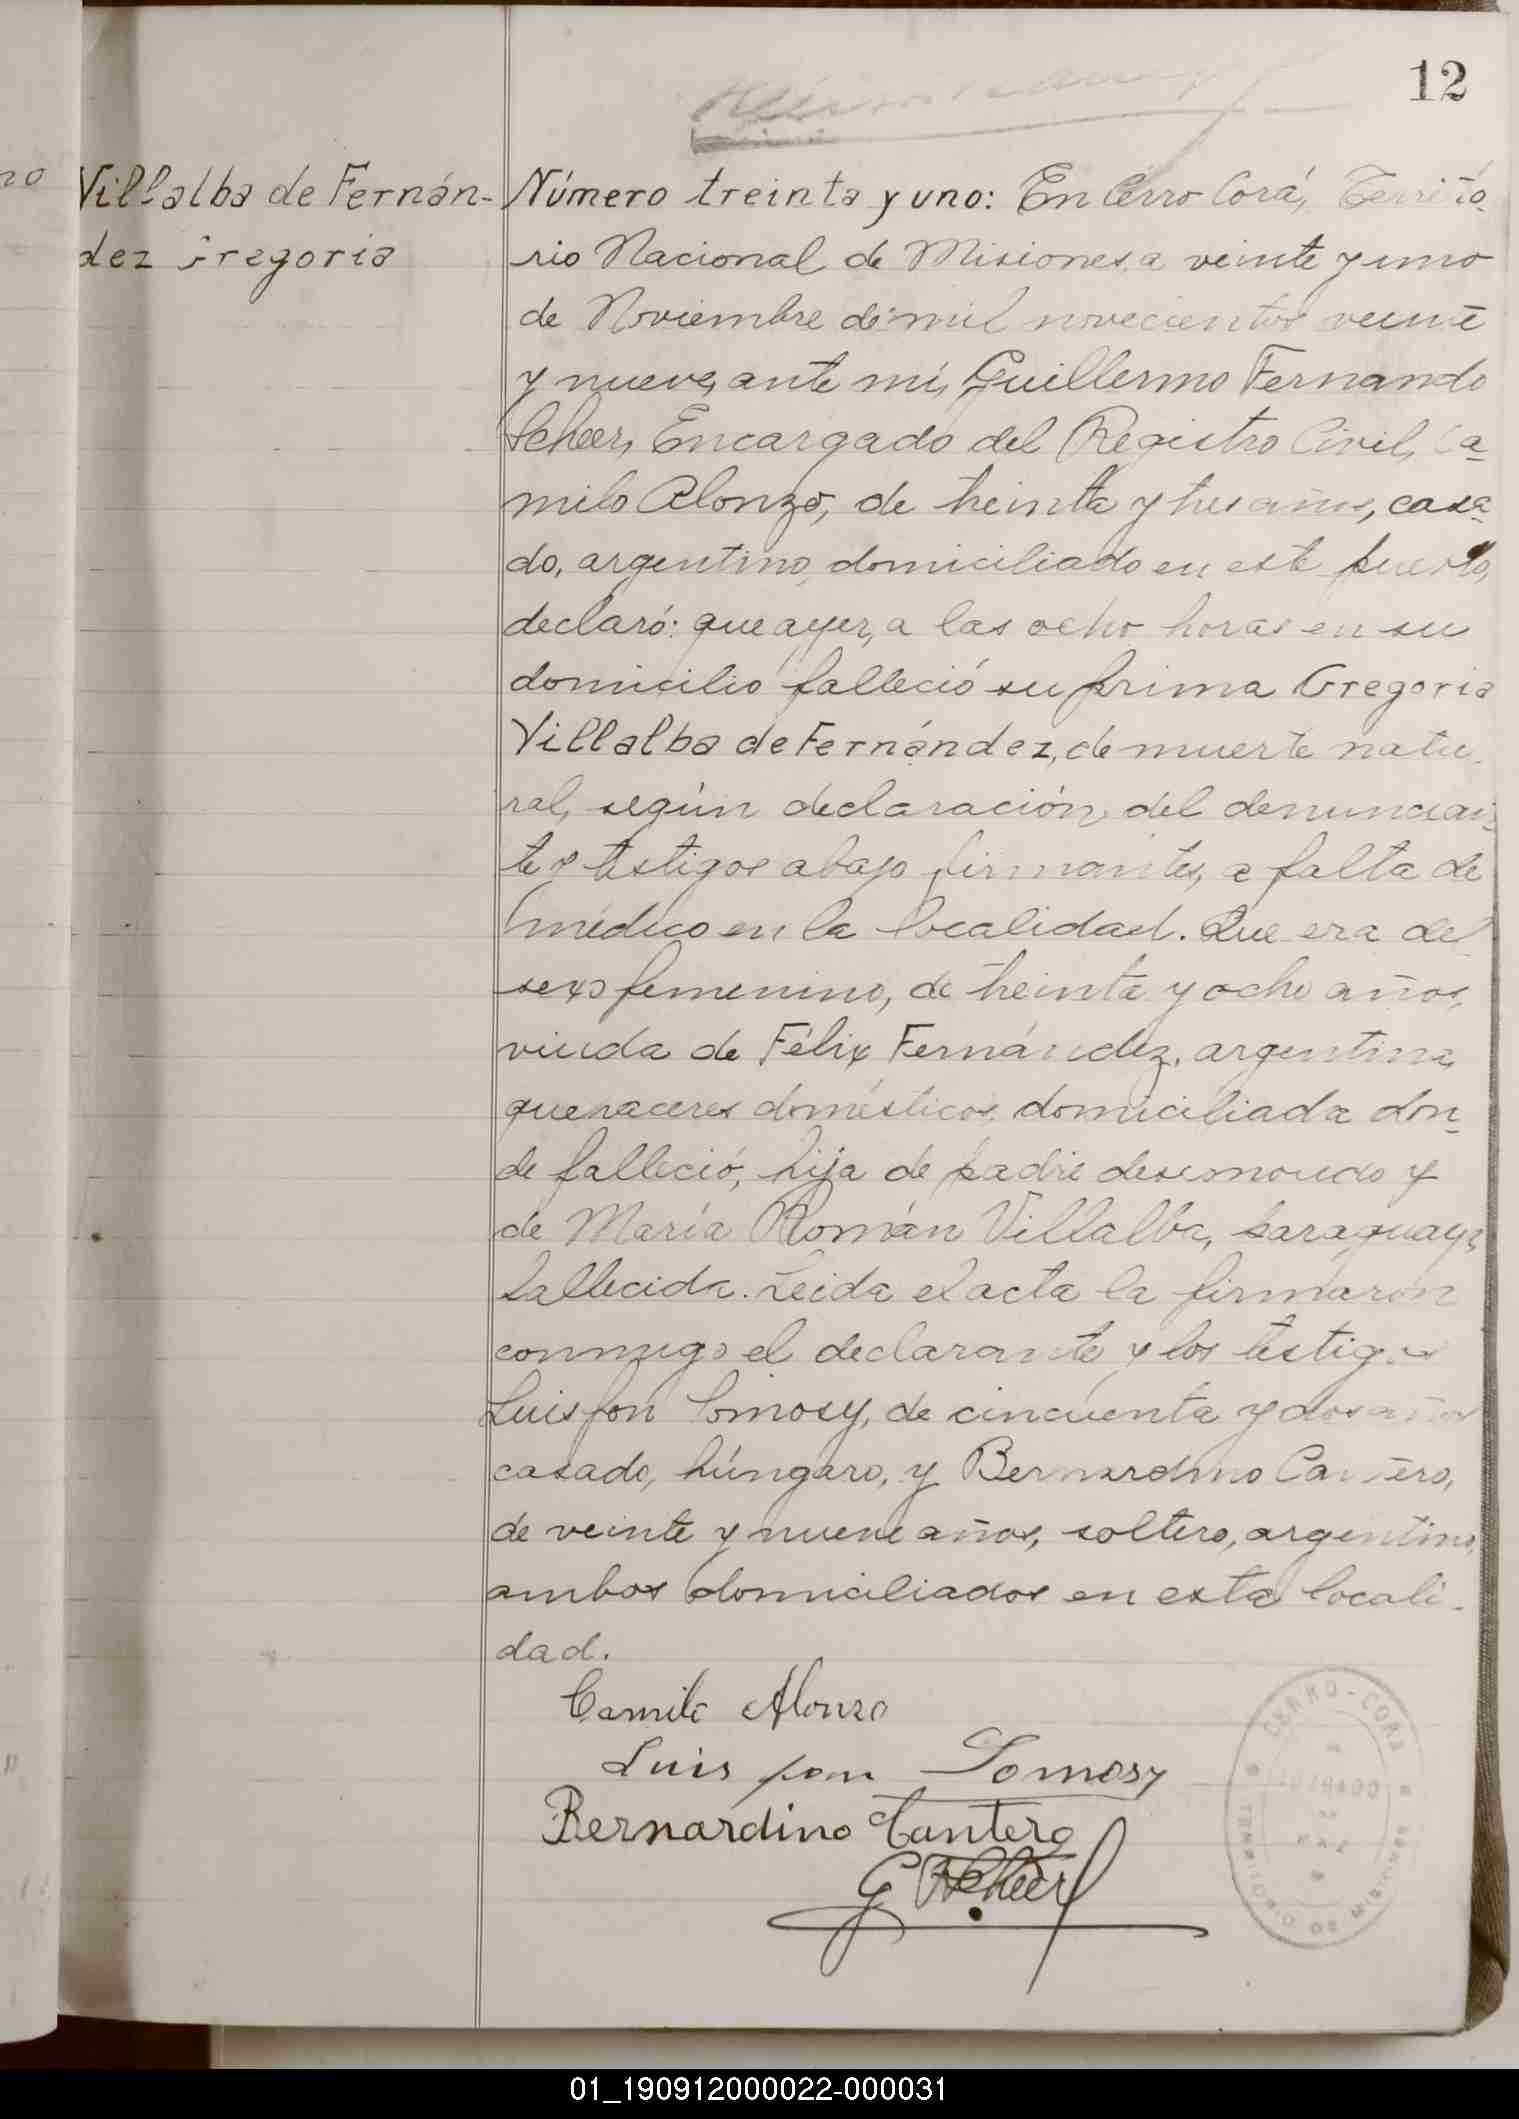 12
Villalba de Fernán-
dez Gregoria
Número treinta y uno: En Cerro Corá, Territo-
rio Nacional de Misiones, a veinte y uno
de Noviembre de mil novecientos veinte
y nueve, ante mí, Guillermo Fernando
Scheer, Encargado del Registro Civil, Ca-
milo Alonzo, de treinta y tres años, casa-
do, argentino, domiciliado en este pueblo,
declaró: que ayer, a las ocho horas en su
domicilio falleció su prima Gregoria
Villalba de Fernández, de muerte natu-
ral, según declaración del denuncian-
te y testigos abajo firmantes, a falta de
médico en la localidad. Que era del
sexo femenino, de treinta y ocho años,
viuda de Félix Fernández, argentina,
quehaceres domésticos, domiciliada don-
de falleció, hija de padre desconocido y
de María Román Villalba, paraguaya,
fallecida. Leida el acta la firmaron
conmigo el declarante y los testigos
Luis fon Somosy, de cincuenta y dos años
casado, húngaro, y Bernardino Cantero,
de veinte y nueve años, soltero, argentino,
ambos domiciliados en esta locali-
dad.
Camilo Alonzo
Luis fon Somosy
Bernardino Cantero
G F Scheer
CERRO-CORA
TERRITORIO DE MISIONES
01_190912000022-000031